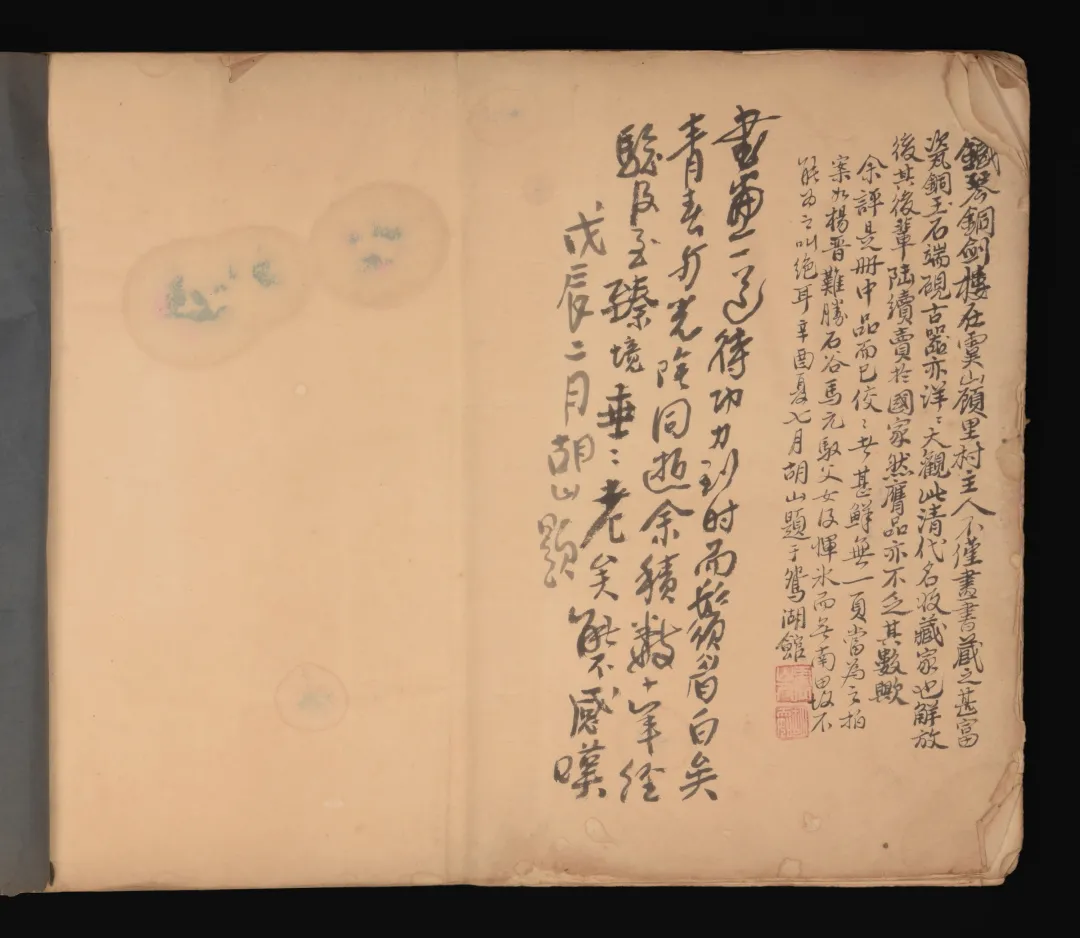 鐵琴銅劍樓在虞山顧里村主人不僅畫書藏之甚富
瓷銅玉石端硯古器亦洋﹕大觀此清代名收藏家也解放
後其後輩陸續賣於國家然膺品亦不乏其數歟
余評是册中品而已佼﹕者甚鮮無一頁當為之拍
案如楊晋難勝石谷馬元馭父女及惲冰而無南田故不
能為之叫絶耳辛酉夏七月胡山題于鴛湖館
書畫一道待功力到時而鬚眉白矣
青春与光陰同逝余積數十年經
驗及至臻境垂﹕老矣能不感嘆
戊辰二月胡山題